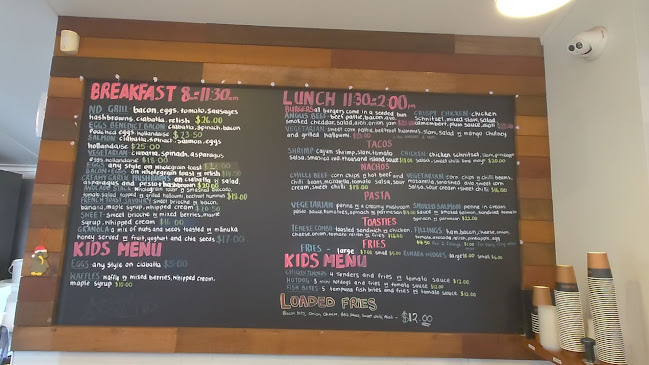 BREAKFAST 8am-11:30am
ND GRILL bacon, eggs, tomato, sausages
hashbrowns, ciabatta, relish $26.00
EGGS BENEDICT BACON ciabatta, spinach, bacon
Poached eggs hollandaise $23.50
SALMON ciabatta, spinach, salmon, eggs
hollandaise $25.00
VEGETARIAN ciabatta, spinach, asparagus
eggs hollandaise
EGGS any style on wholegrain toast
BACON + EGGS on wholegrain toast n relish
CREAMY GARLIC MUSHROOMS on ciabatta n salad
asparagus and pesto $20.00
AVOCADO STACK wholegrain sour n smashed avocado,
$18.00
FRENCH TOAST SAVOURY sweet brioche n bacon,
banana, maple syrup, whipped cream $20.50
SWEET sweet brioche n mixed berries, maple
syrup, whipped cream
GRANOLA a mix of nuts and seeds toasted n manuka
honey served n fruit, yoghurt and chia seeds $17.00
KIDS MENU
EGGS any style on ciabatta
WAFFLES waffle n mixed berries, whipped cream,
maple syrup $10.00
LUNCH 11:30-2:00pm
BURGERS all burgers come in a seeded bun
ANGUS BEEF beef pattie, bacon n
smoked cheddar, salad, aioli, onion jam
CRISPY CHICKEN chicken
schnitzel, mixed slaw, salad
camembert, plum sauce, aioli
VEGETARIAN sweet corn pattie, beetroot hummus, slaw, salad n mango chutney
and grilled halloumi
TACOS
SHRIMP cajun shrimp, slaw, tomato
salsa, smashed avo, thousand island sauce
CHICKEN chicken schnitzel, slaw,
salsa, sweet chilli lime mayo $20.00
NACHOS
CHILLI BEEF corn chips n hot beef and
chilli beans, mozzarella, tomato salsa, sour
cream, sweet chilli $19.00
VEGETARIAN corn chips n chilli beans,
mozzarella, smashed avo, sweet corn
salsa, sour cream, sweet chilli $16.00
PASTA
VEGETARIAN penne n a creamy mushroom
pesto sauce, tomatoes, spinach n parmesan
SMOKED SALMON penne n cream
sauce n smoked salmon, sundried tomato
spinach n parmesan $22.00
TOASTIES
TENEKE COMBO toasted sandwich n chicken,
cheese, onion, tomato relish n fries
FILLINGS ham, bacon, cheese, onion,
tomato, avocado, relish, pineapple, egg
FRIES
FRIES - large $7.00 small
KUMARA WEDGES large $8.00 small
KIDS MENU
CHICKEN TENDERS 4 tenders and fries n tomato sauce $12.00
HOTDOG 3 mini hotdogs and fries n tomato sauce $12.00
FISH BITES 5 tempura fish bites and fries n tomato sauce $12.00
LOADED FRIES
Bacon bits, onion, cheese, BBQ sauce, sweet chilli, aioli - $12.00